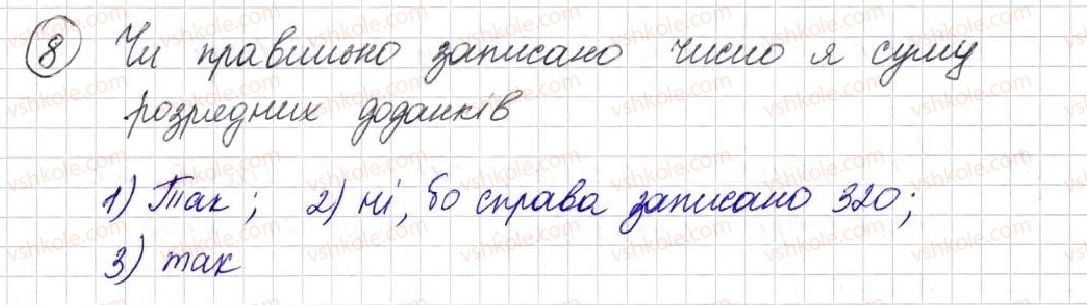 8 Чи правильно записано число я суму
розрядних доданків
1) Так; 2) ні, бо справа записано 320;
3) так